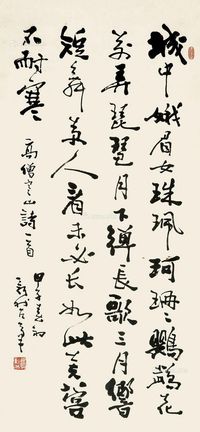 城中娥眉女珠珮珂珊〻鸚鵡花
前弄琵琶月下彈長歌三月響
短舞萬人看未必長如此芙蓉
不耐寒
高僧寒山詩一首